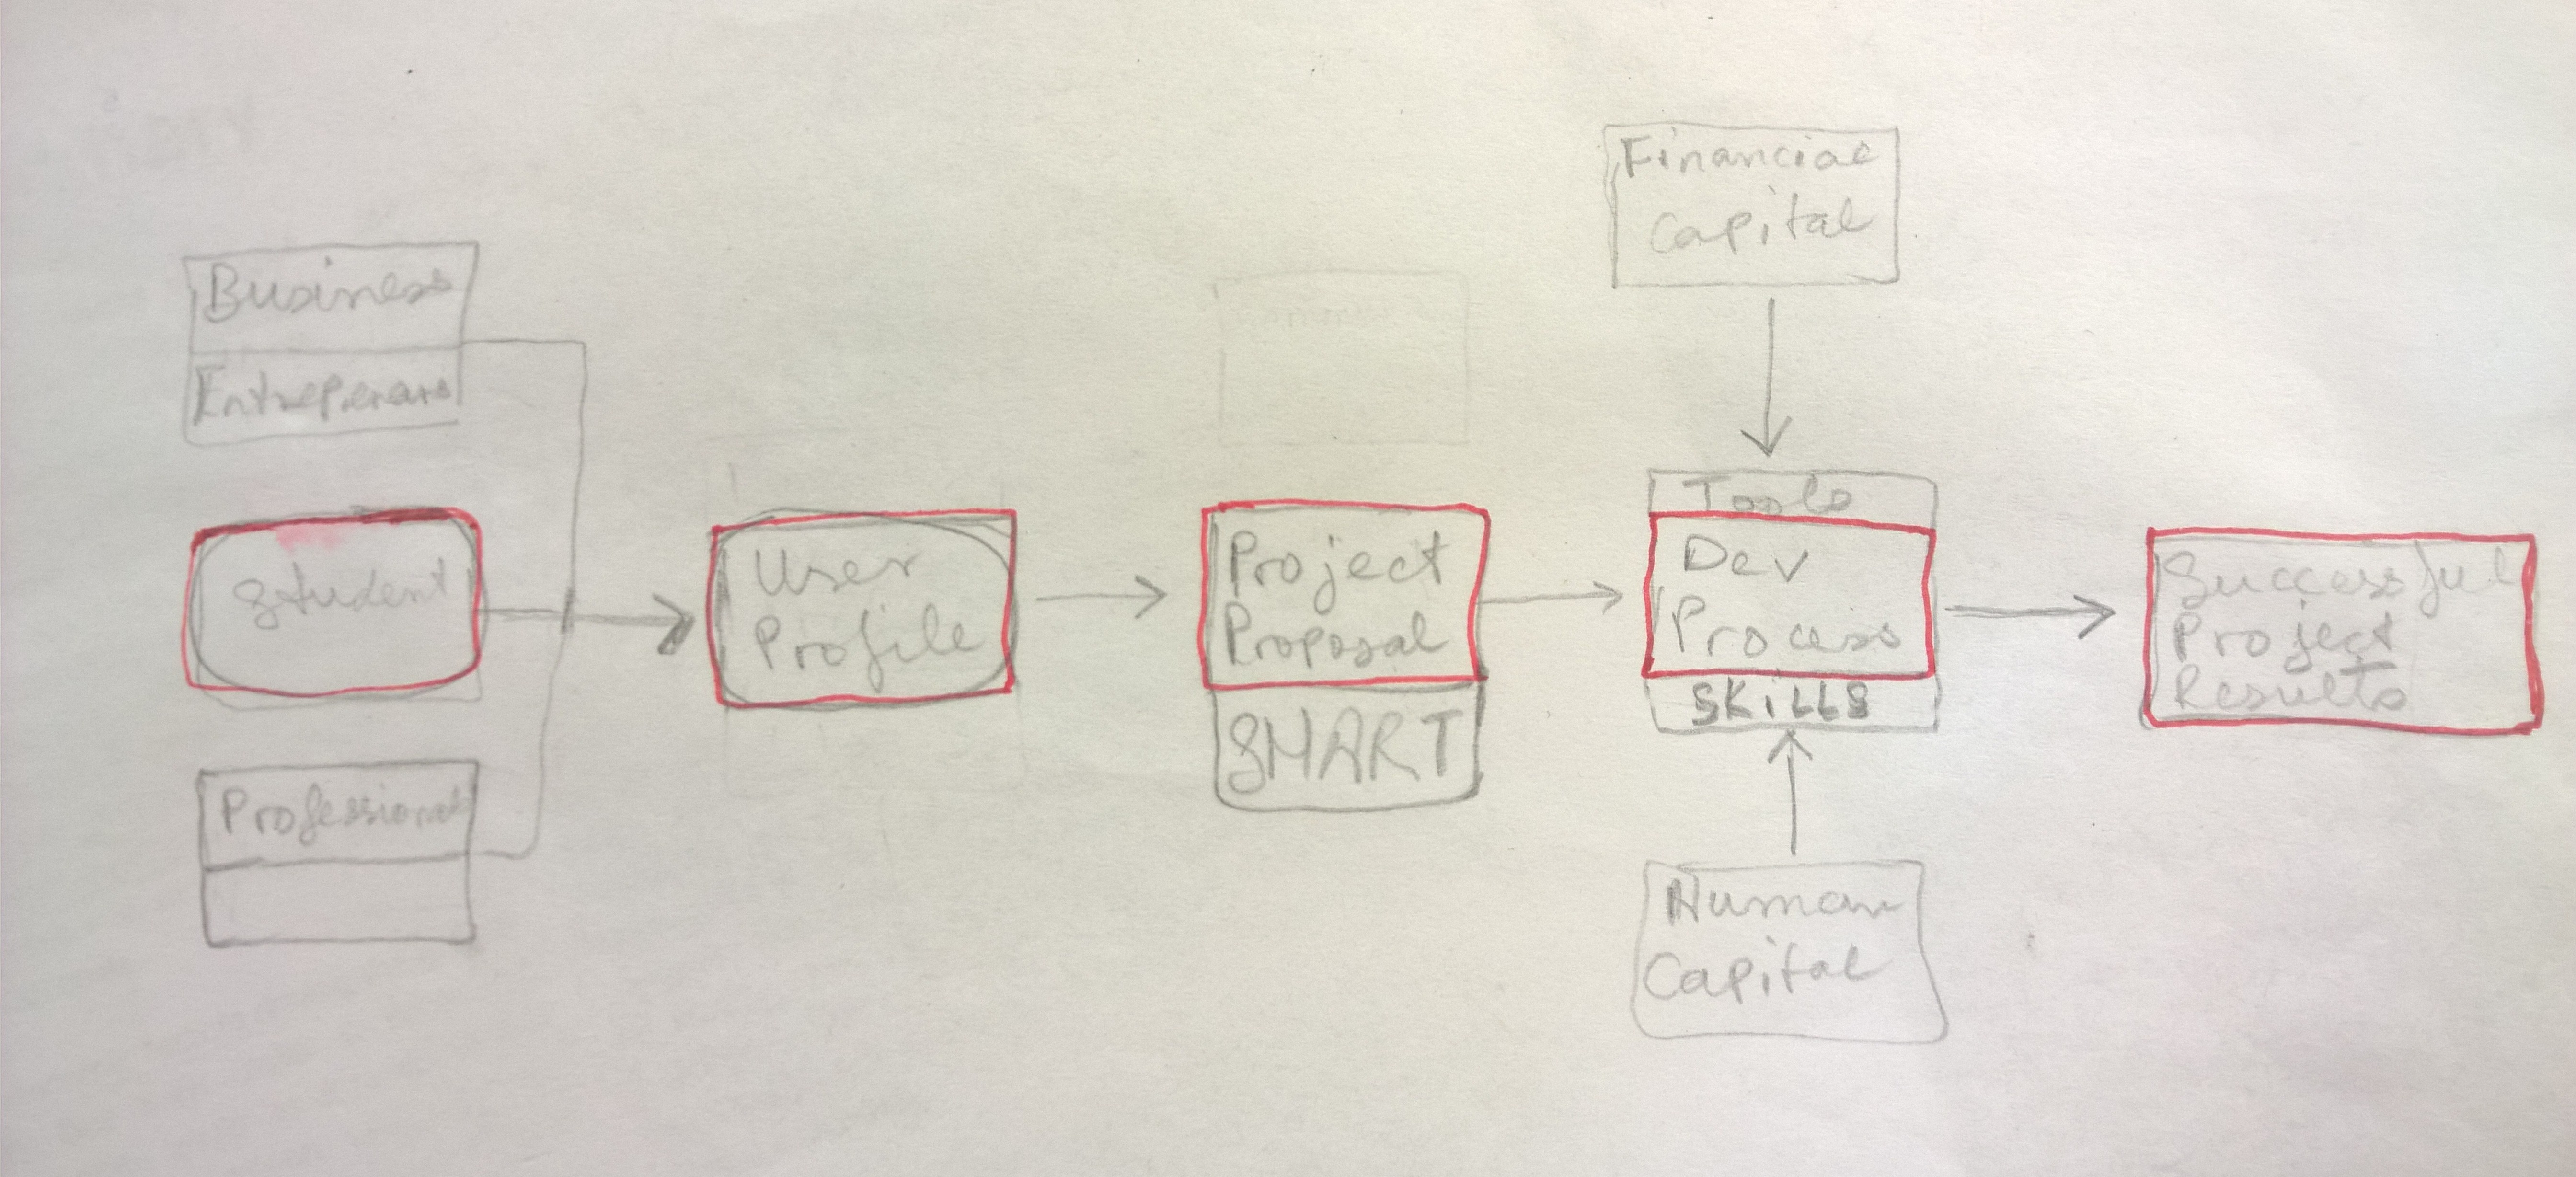 Business
Entreperars
Student
Professional
User
Profile
Project
Proposal
SMART
Financial
Capital
Tools
Dev
Process
SKiLLS
Human
Capital
Successful
Project
Results